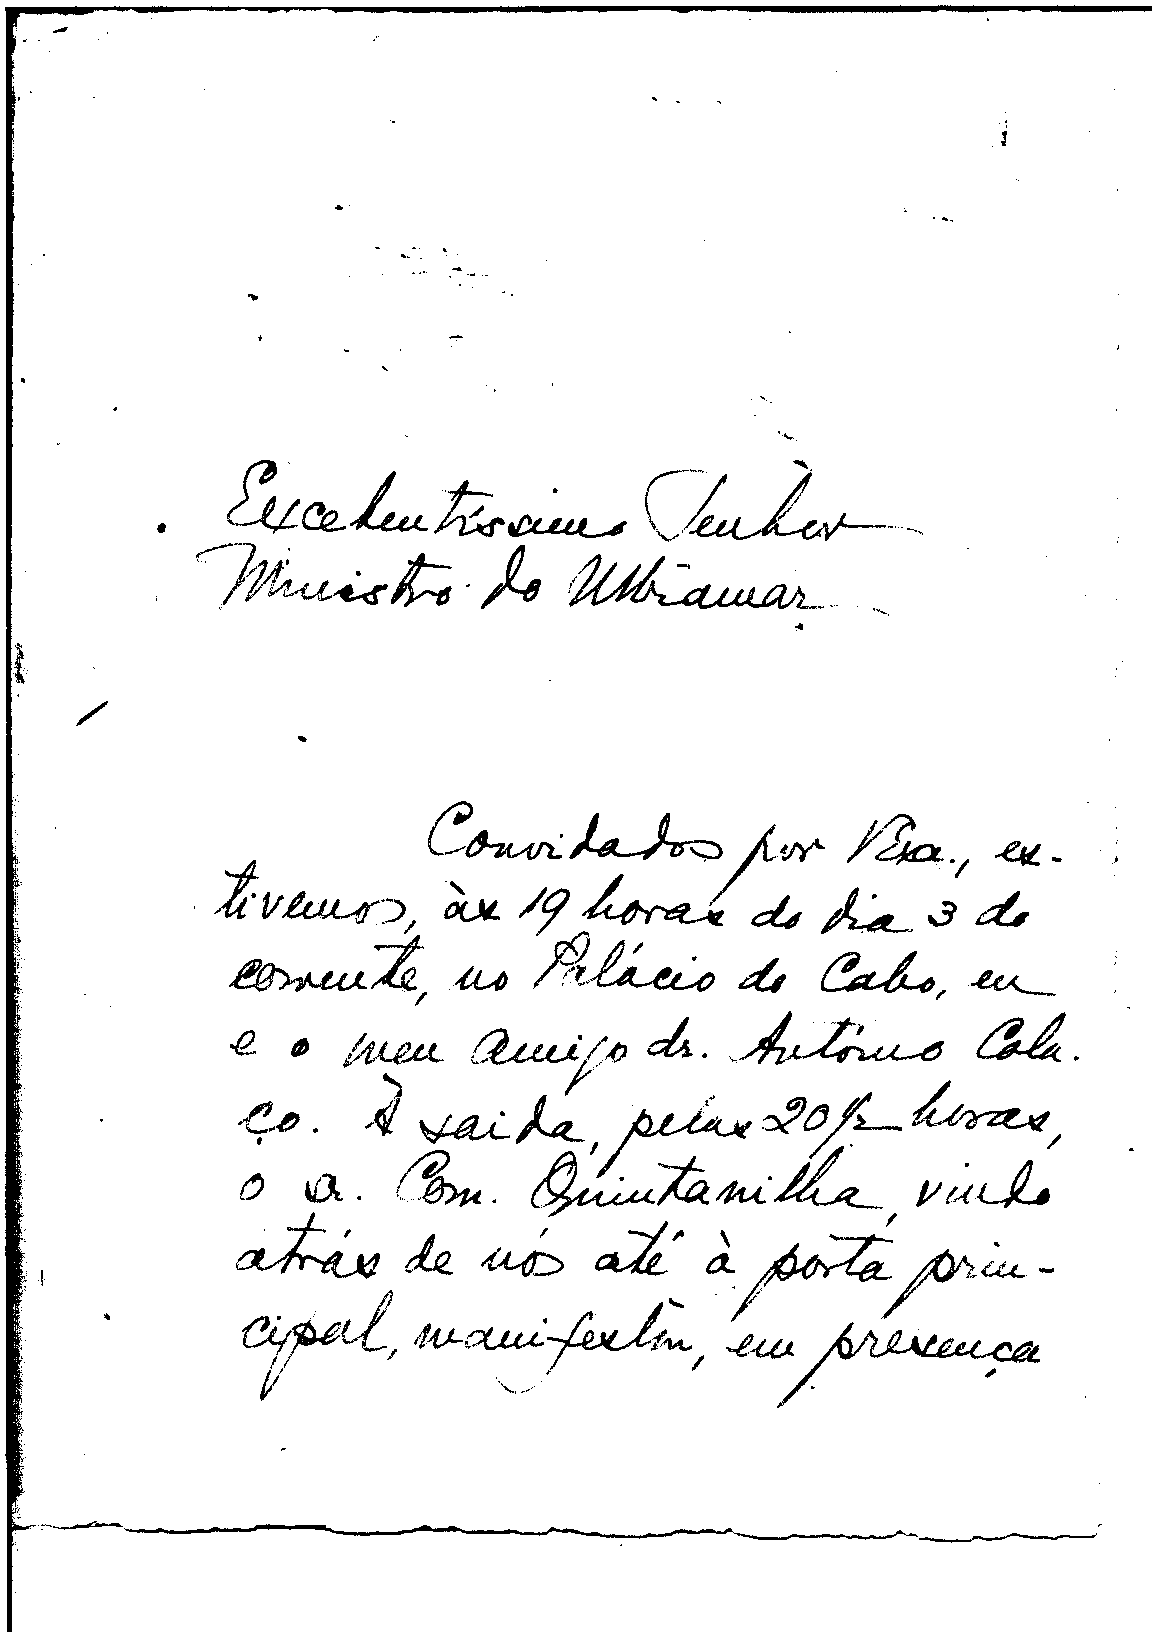 Excelentíssimo Senhor
Ministro do Ultramar
Convidados por V Exa., es-
tivemos, às 19 horas do dia 3 do
corrente, no Palácio do Cabo, eu
e o meu amigo dr. António Cola-
ço. À saida, pelas 20 1/2 horas,
o sr. Com. Quintanilha, vindo
atrás de nós até à porta prin-
cipal, manifestou, em presença